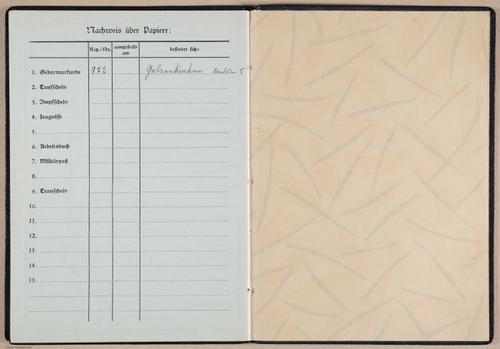 Nachweis über Papiere:
Reg.-Nr. ausgestellt am befindet sich:
1. Geburtsurkunde 972 Gelsenkirchen
2. Taufschein
3. Impfschein
4. Zeugnisse
5.
6. Arbeitsbuch
7. Militärpaß
8.
9. Trauschein
10.
11.
12.
13.
14.
15.